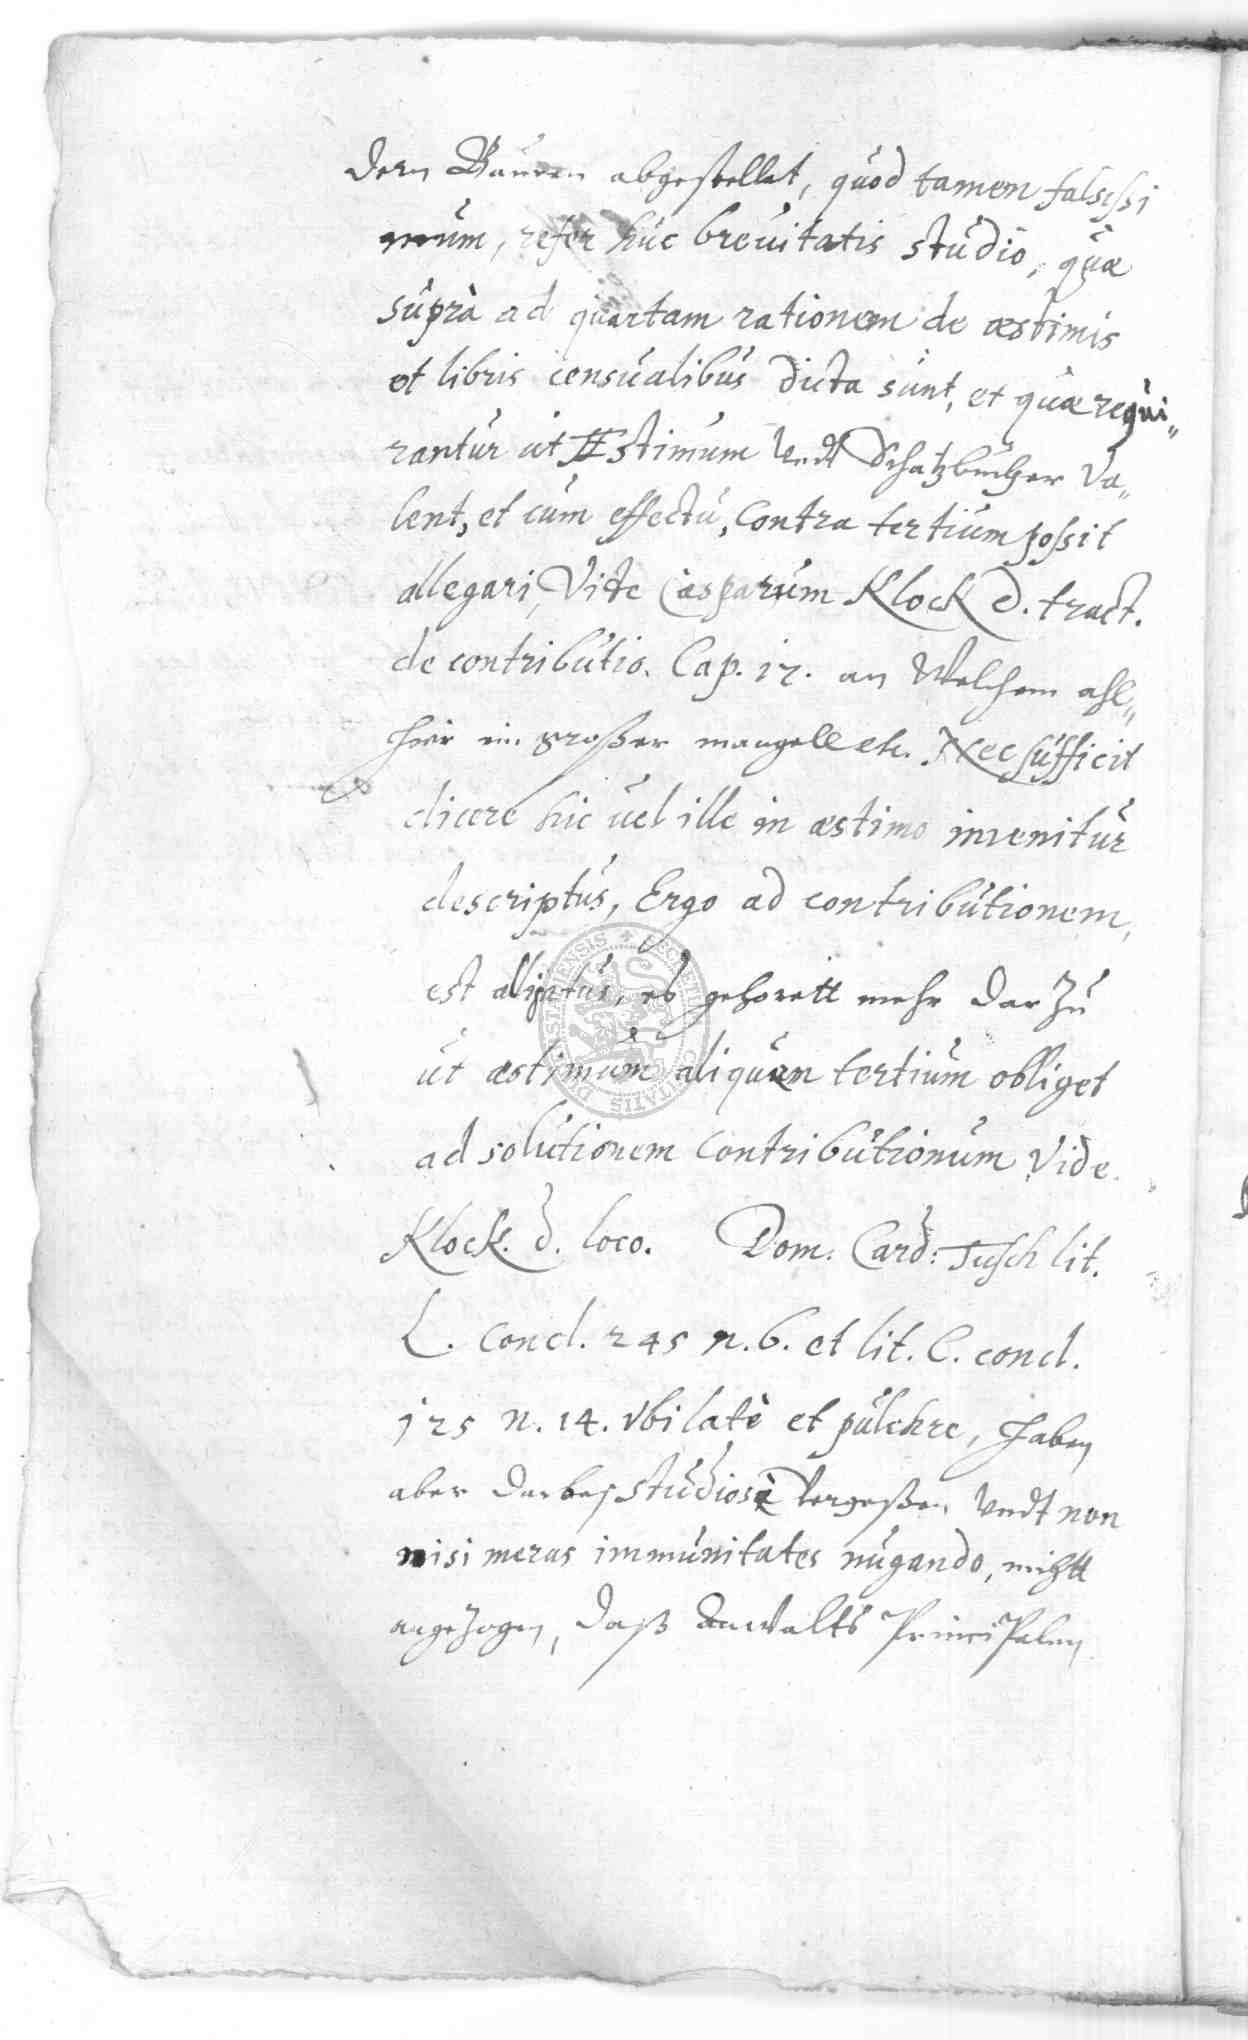 dern Bauren abgestellet, quod tamen falsissi
mum, refer huc breuitatis studio, quæ
suprà ad quartam rationem de æstimis
et libris censualibus dicta sunt, et quæ requi„
rantur ut Æstimum undt Schatzbücher va„
lent, et cum effectu, contra tertium possit
allegari, Vide Casparum Klock d. tract.
de contributio. Cap. 12. an welchem ahl„
hier ein großer mangell etc. Nec sufficit
dicere hic uel ille in æstimo invenitur
descriptus, Ergo ad contributionem,
est alligatus, es gehorett mehr dar zu
ut æstimum aliquem tertium obliget
ad solutionem contributionum Vide.
Klock. d. loco. Dom. Card: Tusch lit.
L. Concl. 245 n. 6. et lit. C. concl.
125 n. 14. vbi latè et pulchre, haben
aber darbej studiosè vergeßen undt non
nisi meras immunitates nugando, nichtt
angezogen, daß Anwalts Principalen